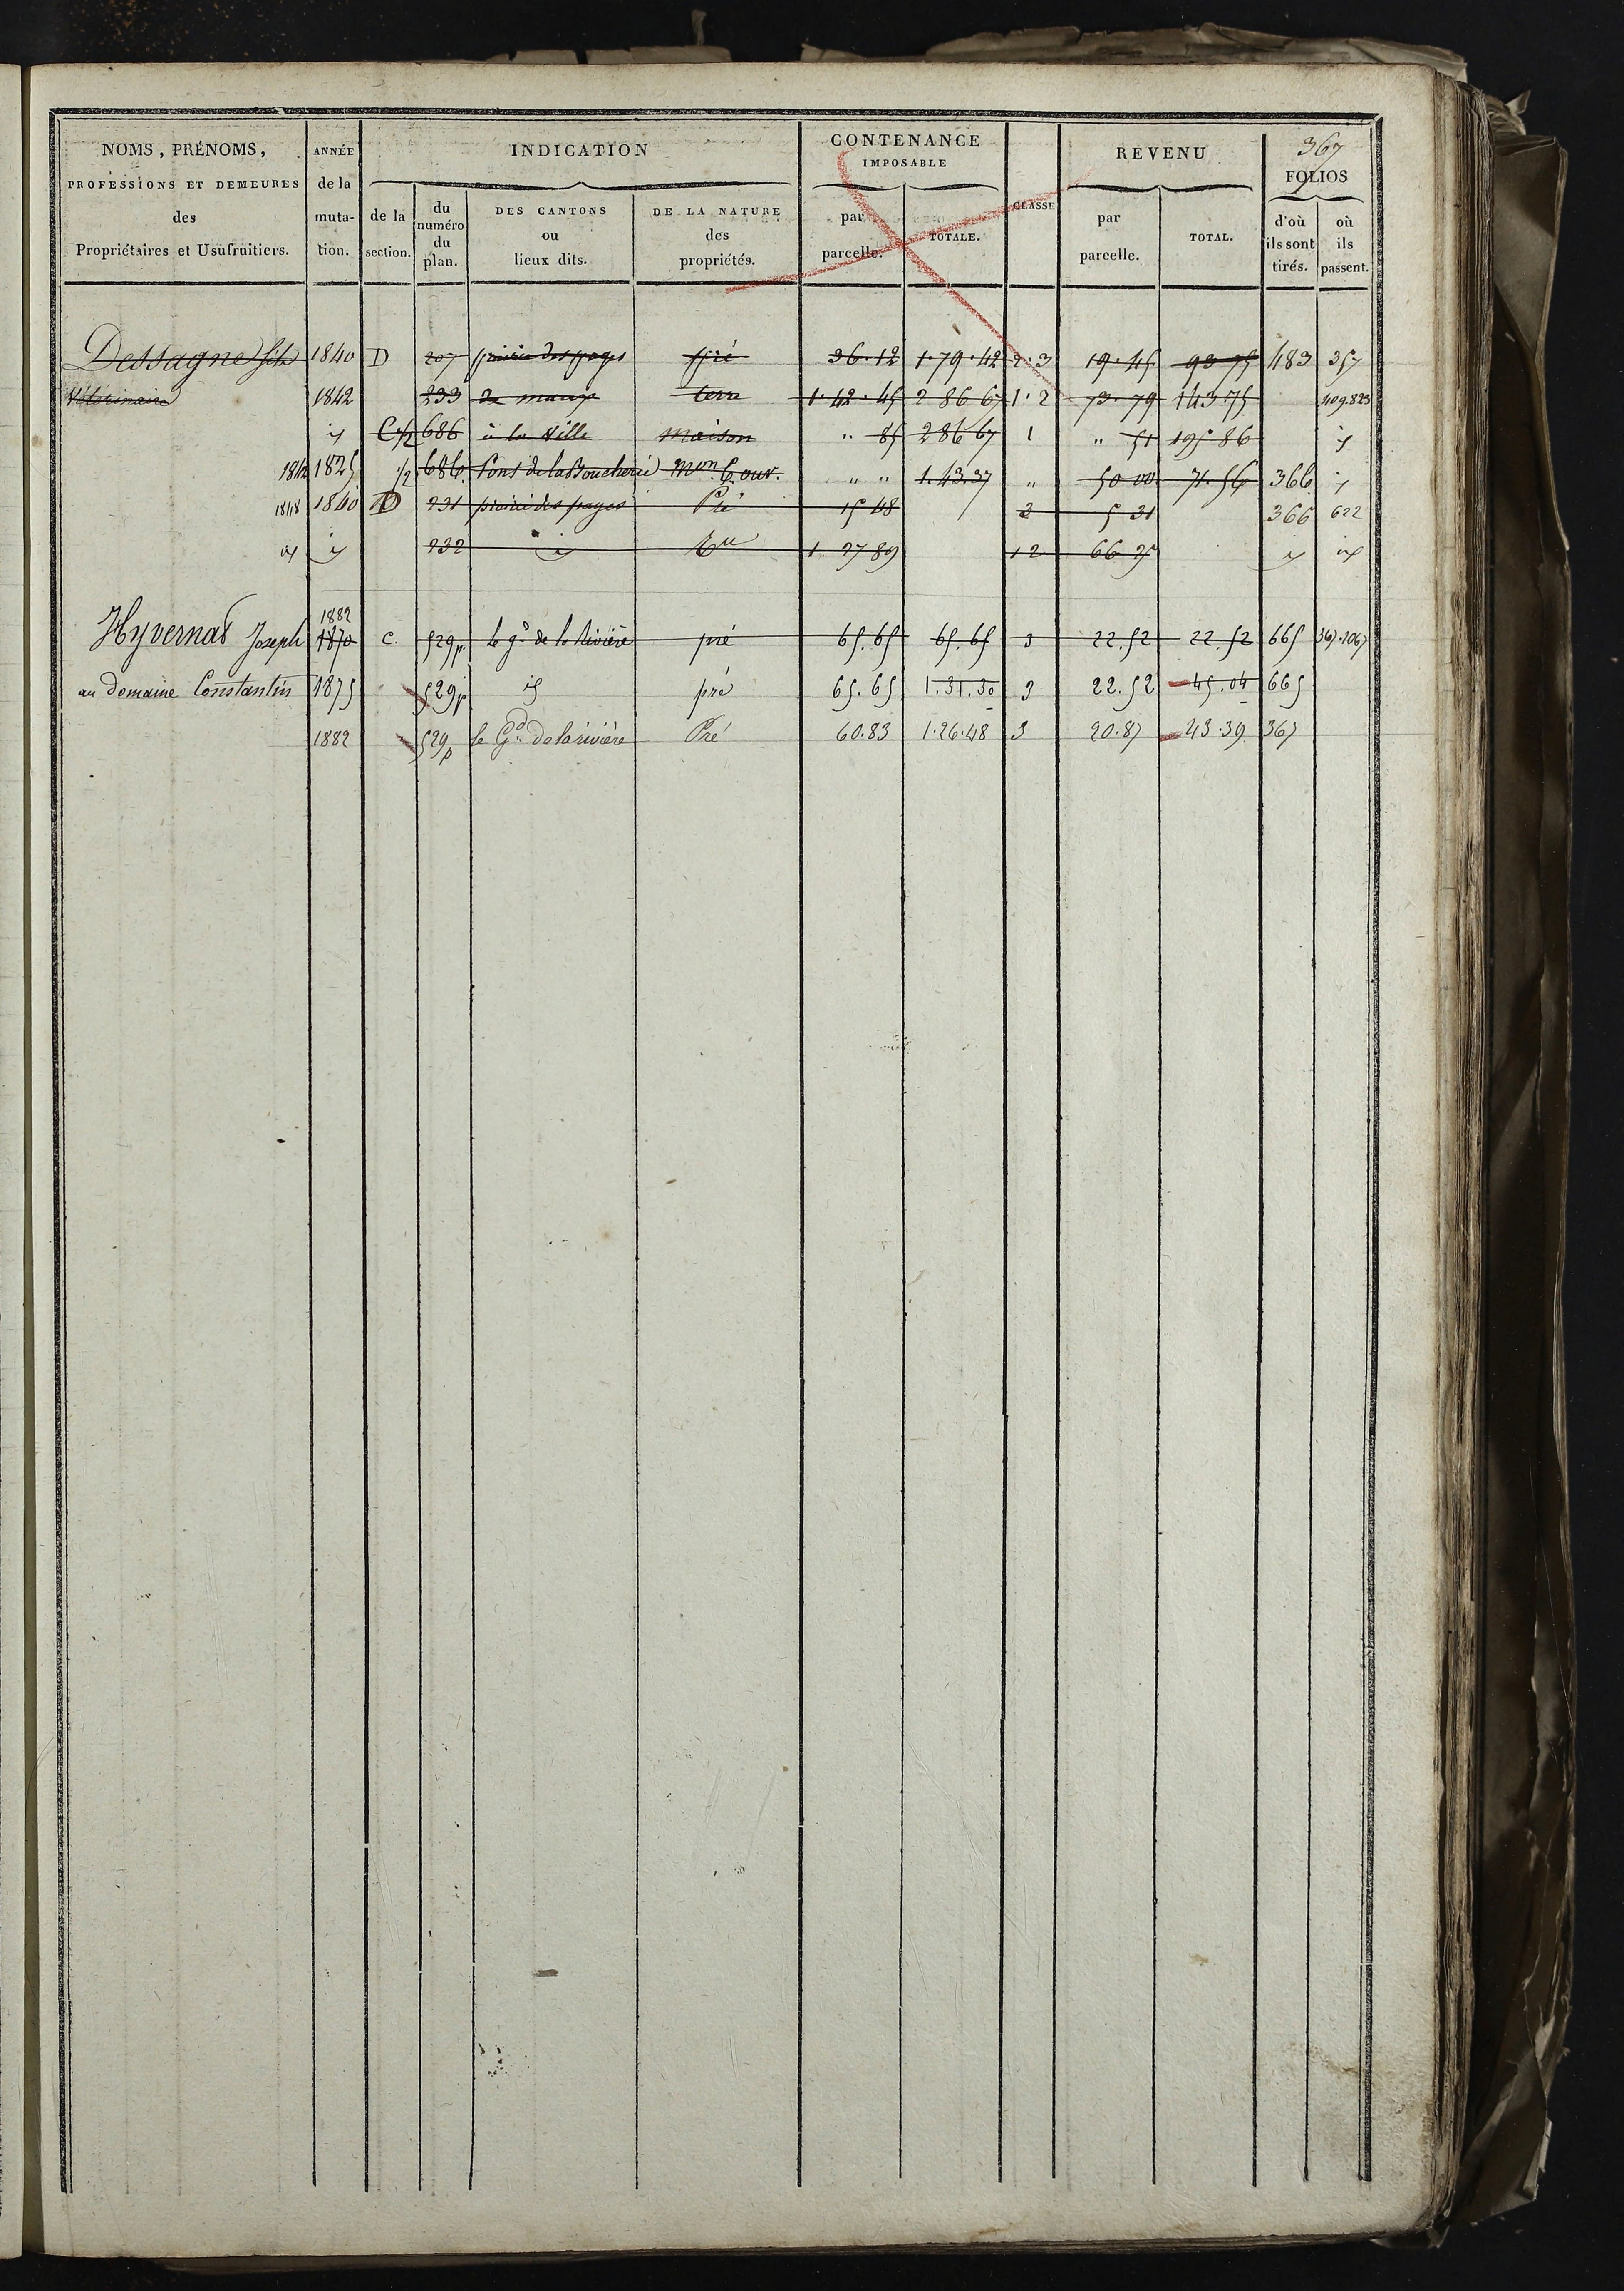 367
NOMS, PRÉNOMS, PROFESSIONS ET DEMEURES des Propriétaires et Usufruitiers. ANNÉE de la muta-tion. INDICATION CONTENANCE IMPOSABLE CLASSE REVENU FOLIOS
de la section. du numéro du plan. DES CANTONS ou lieux dits. DE LA NATURE des propriétés. par parcelle. TOTALE. par parcelle. TOTAL. d'où ils sont tirés. où ils passent.
Dessagne fils 1840 D 207 prairie des pages pré 36.12 1.79.42 2.3 19.45 93 75 483 357
Vétérinaire 1842 233 terre 1.42.45 2 86 67 1.2 73.79 143 75 409.823
id C 1/2 686 à la Ville maison " 85 286 67 1 " 51 195 86 id
1842 1825 1/2 686 Pont de la Boucherie mon 6 ouv. " " 1.43.37 " 50 00 71.56 366 id
1848 1840 D 231 prairie des pages Pré 15 48 3 5 31 366 622
id id 232 id 1 27 89 1 2 66 25 id id
1882
Hyvernat Joseph 1870 C. 529p le gd de la Rivière pré 65.65 65.65 3 22.52 22.52 665 367.1067
au domaine Constantin 1875 529p id pré 65.65 1.31.30 3 22.52 45.04 665
1882 529p le Gd de la rivière Pré 60.83 1.26.48 3 20.87 43.39 367